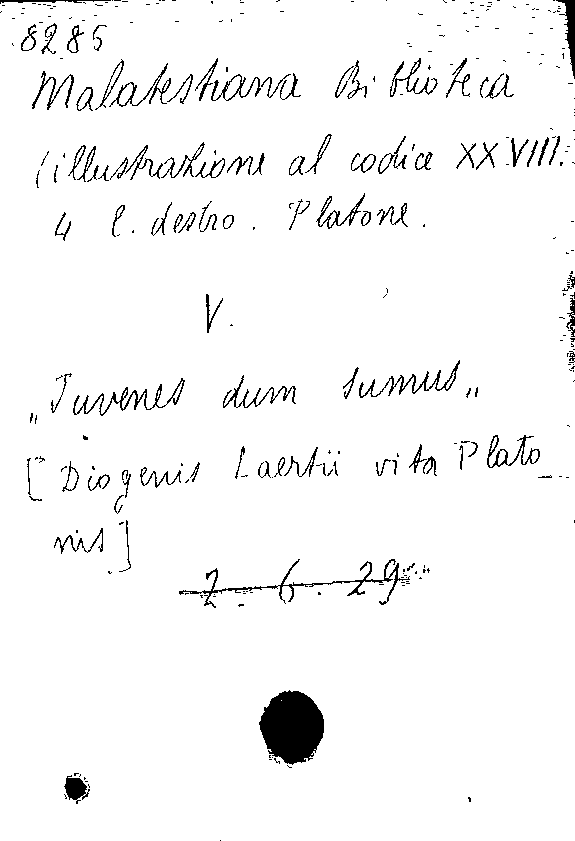 8285
Malatestiana Biblioteca
(illustrazione al codice XXVIII.
4 l. destro. Platone.
V.
„Juvenes dum sumus„
[Diogenis Laertii vita Plato_
nis]
2.6.29